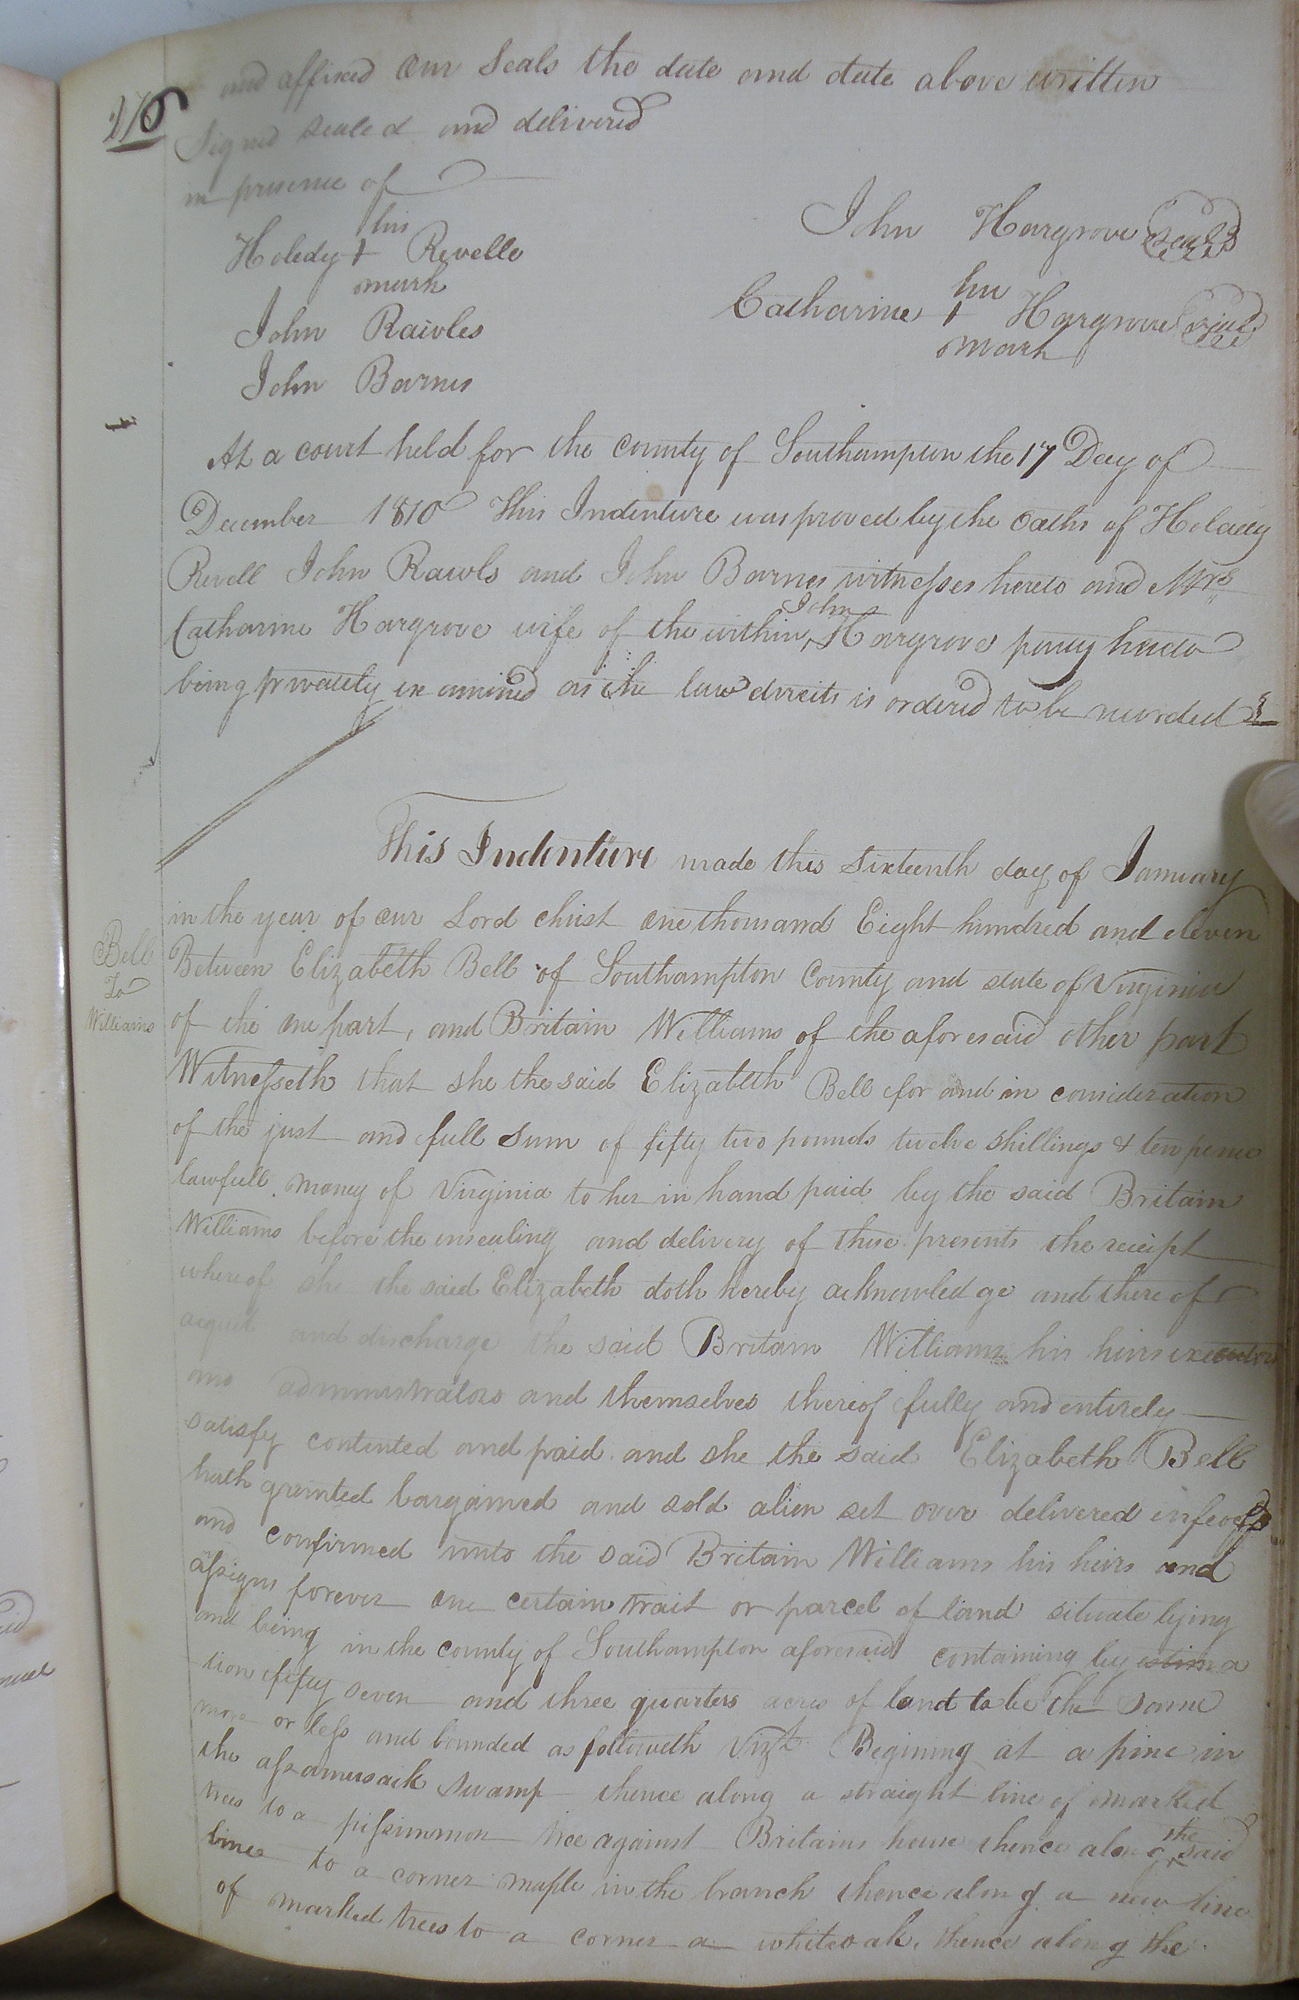 276
and affixed our Seals the date and date above written
Signed sealed and delivered
in presence of
his
Holedy + Revelle
mark
John Rawles
John Barnes
John Hargrove Seal
her
Catharine + Hargrove Seal
mark
At a court held for the county of Southampton the 17 Day of
December 1810 This Indenture was proved by the oaths of Holaday
Revell John Rawls and John Barnes witnesses hereto and Mrs
John
Catharine Hargrove wife of the within ^ Hargrove party hereto
being privately examined as the law directs is ordered to be recorded
This Indenture made this Sixteenth day of January
in the year of our Lord christ one thousand Eight hundred and eleven
Bell
To
Williams
Between Elizabeth Bell of Southampton County and state of Virginia
of the one part, and Britain Williams of the aforesaid other part
Witnesseth that she the said Elizabeth Bell for and in consideration
of the just and full Sum of fifty two pounds twelve shillings & ten pence
lawfull money of Virginia to her in hand paid by the said Britain
Williams before the insealing and delivery of these presents the receipt
whereof she the said Elizabeth doth hereby acknowledge and there of
acquit and discharge the said Britain Williams his heirs executors
and administrators and themselves thereof fully and entirely
satisfy contented and paid and she the said Elizabeth Bell
hath granted bargained and sold alien set over delivered infeoff
and confirmed unto the said Britain Williams his heirs and
assigns forever one certain trait or parcel of land situate lying
and being in the county of Southampton aforesaid containing by estima
tion fifty seven and three quarters acres of land to be the same
more or less and bounded as followeth Vizt. Begining at a pine in
the assamusack swamp thence along a straight line of marked
trees to a pissimmon tree against Britains house thence along ^ the said
lines to a corner maple in the branch thence along a new line
of marked trees to a corner a whiteoak, thence along the